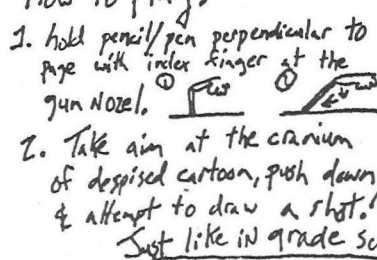 1. hold pencil/pen perpendicular to
page with index finger at the
gun nozel. ① ①
2. Take aim at the cranium
of despised cartoon, push down
& attempt to draw a shot.
Just like in grade sc